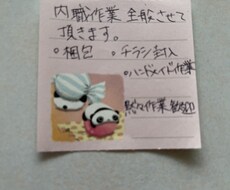 内職作業 全般させて
頂きます。
○梱包 ○チラシ封入
○ハンドメイド作業
黙々作業歓迎